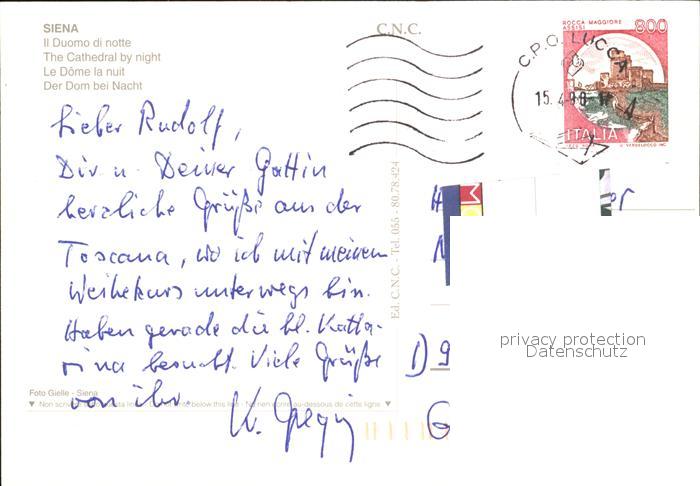 SIENA
Il Duomo di notte
The Cathedral by night
Le Dôme la nuit
Der Dom bei Nacht
C.N.C.
ROCCA MAGGIORE
ASSISI
800
ITALIA
C.P.O. LUCCA
15.4.90
Lieber Rudolf,
Dir u. Deiner Gattin
herzliche Grüße aus der
Toscana, wo ich mit meinem
Weihekurs unterwegs bin.
Haben gerade die hl. Katha-
rina besucht. Viele Grüße
von ihr.
Ed. C.N.C. - Tel. 055 - 80.78.424
D 9
G
privacy protection
Datenschutz
Foto Gielle - Siena